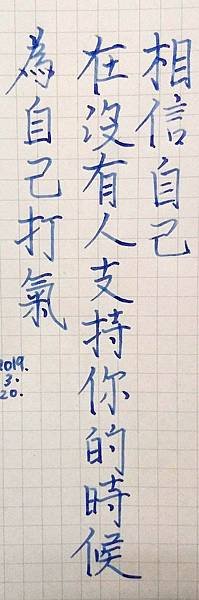 相信自己
在沒有人支持你的時候
為自己打氣
2019.
3.
20.